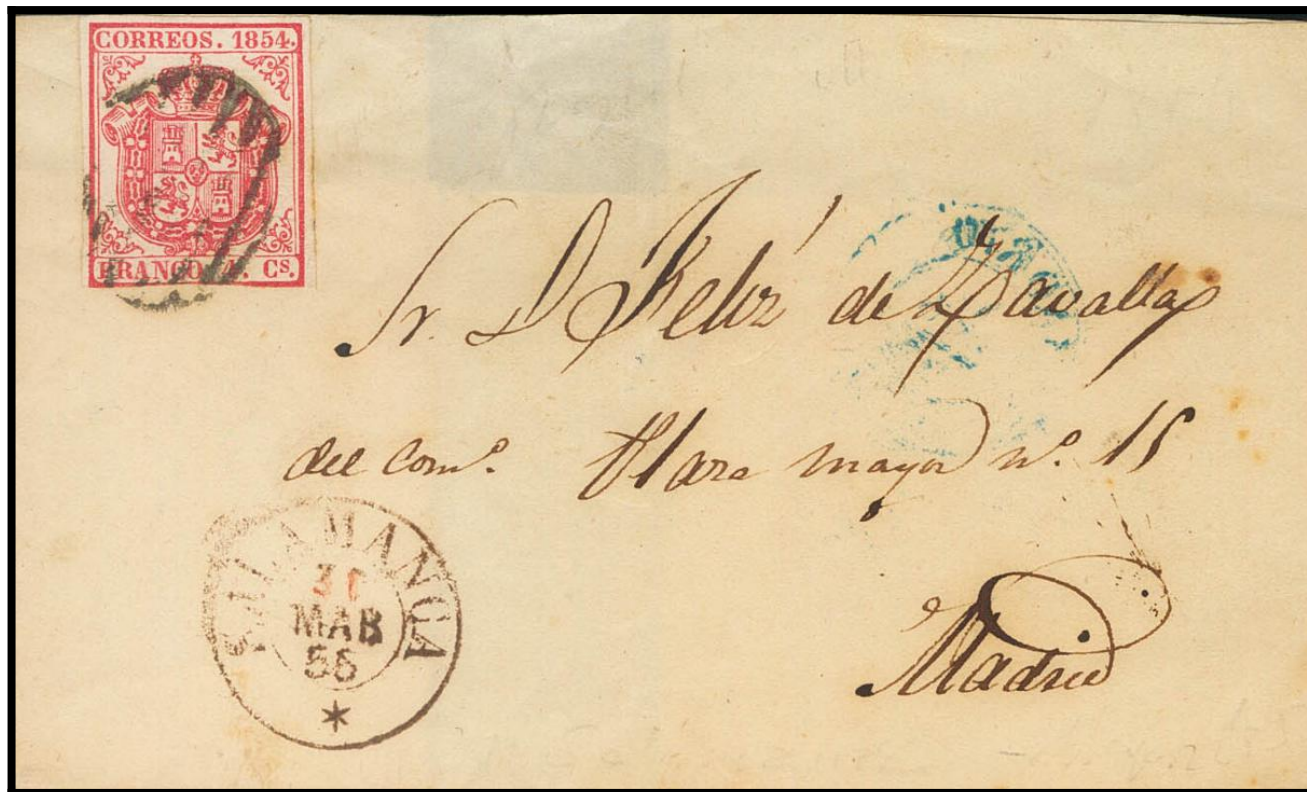 CORREOS. 1854.
FRANCO. Cs.
Sr. D Feliz de Zavalla
del com.º Plaza mayor n.º 15
SALAMANCA
31
MAR
55
Madrid